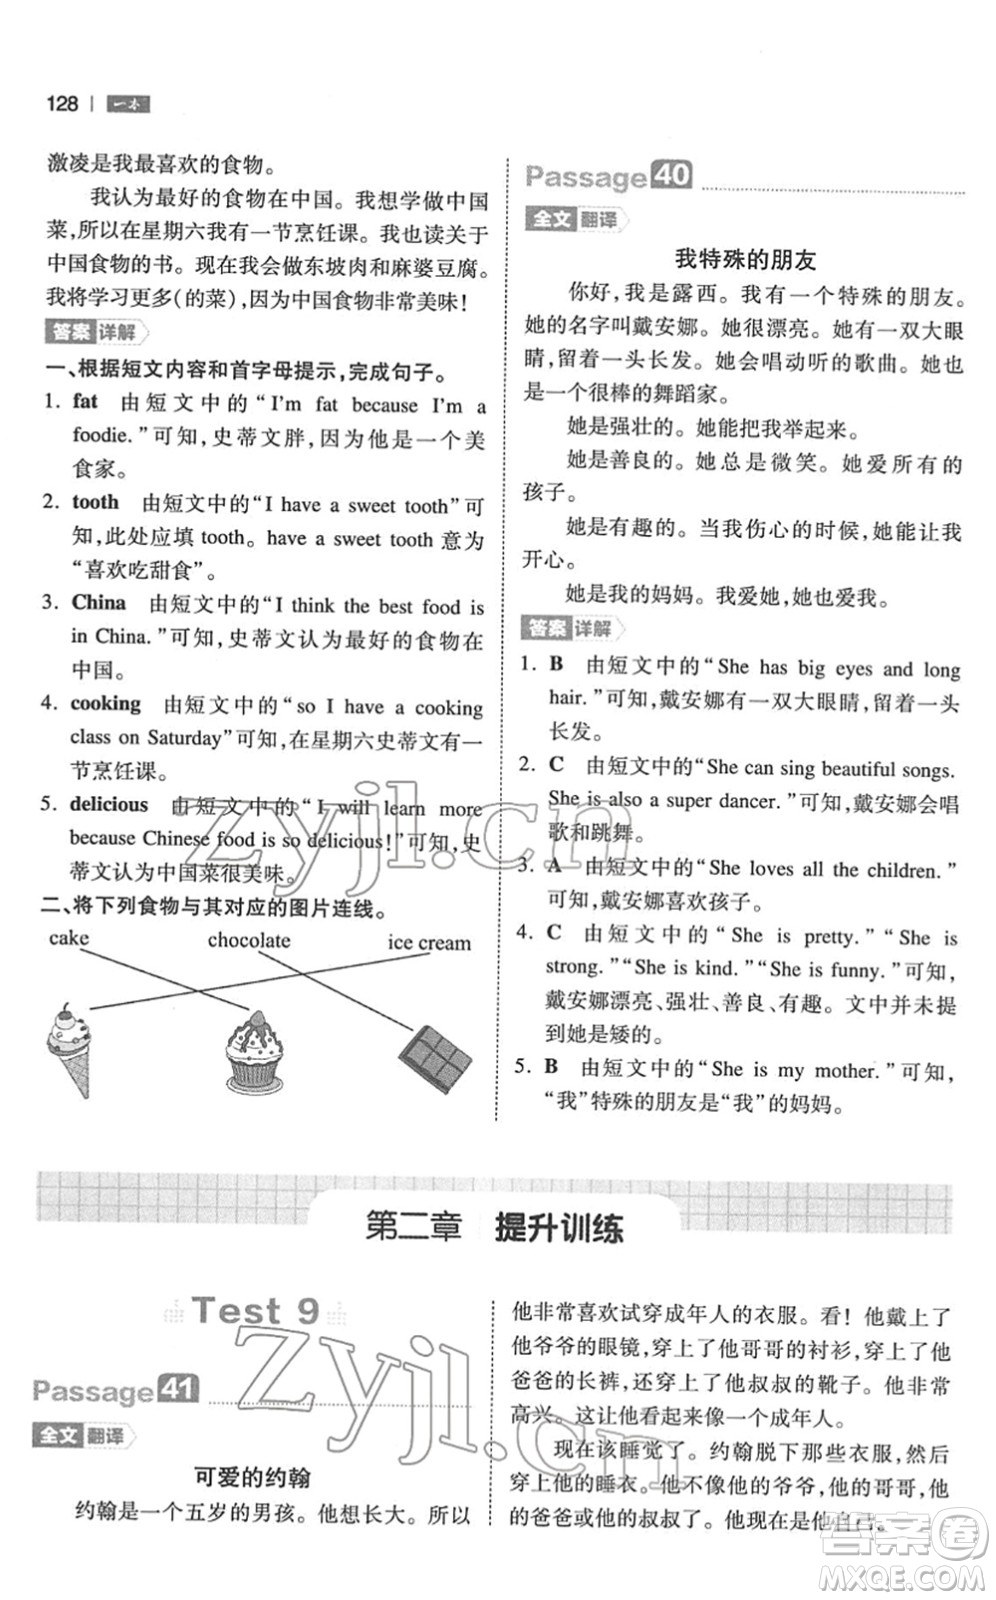 128 | 一本
激凌是我最喜欢的食物。
我认为最好的食物在中国。我喜欢中国
菜,所以在星期六我有一节烹饪课。我也读关于
中国食物的书。现在我会做东坡肉和麻婆豆腐。
我将学习更多(的菜),因为中国食物非常美味!
答案 详解
一、根据短文内容和首字母提示,完成句子。
1. fat 由短文中的“I'm fat because I'm a
foodie.”可知,史蒂文胖,因为他是一个美
食家。
2. tooth 由短文中的“I have a sweet tooth”可
知,此处应填 tooth。have a sweet tooth 意为
“喜欢吃甜食”。
3. China 由短文中的“I think the best food is
in China.”可知,史蒂文认为最好的食物在
中国。
4. cooking 由短文中的“so I have a cooking
class on Saturday”可知,在星期六史蒂文有一
节烹饪课。
5. delicious 由短文中的“I will learn more
because Chinese food is so delicious!”可知,史
蒂文认为中国菜很美味。
二、将下列食物与其对应的图片连线。
cake chocolate ice cream
Passage 40
全文 翻译
我特殊的朋友
你好,我是露西。我有一个特殊的朋友。
她的名字叫戴安娜。她很漂亮。她有一双大眼
睛,留着一头长发。她会唱动听的歌曲。她也
是一个很棒的舞蹈家。
她是强壮的。她能把我举起来。
她是善良的。她总是微笑。她爱所有的
孩子。
她是有趣的。当我伤心的时候,她能让我
开心。
她是我的妈妈。我爱她,她也爱我。
答案 详解
1. B 由短文中的“She has big eyes and long
hair.”可知,戴安娜有一双大眼睛,留着一头
长发。
2. C 由短文中的“She can sing beautiful songs.
She is also a super dancer.”可知,戴安娜会唱
歌和跳舞。
3. A 由短文中的“She loves all the children.”
可知,戴安娜喜欢孩子。
4. C 由短文中的“She is pretty.”“She is
strong.”“She is kind.”“She is funny.”可知,
戴安娜漂亮、强壮、善良、有趣。文中并未提
到她是矮的。
5. B 由短文中的“She is my mother.”可知,
“我”特殊的朋友是“我”的妈妈。
zyjl.cn
第二章 提升训练
Test 9
Passage 41
全文 翻译
可爱的约翰
约翰是一个五岁的男孩。他想长大。所以
他非常喜欢试穿成年人的衣服。看!他戴上了
他爷爷的眼镜,穿上了他哥哥的衬衫,穿上了他
爸爸的长裤,还穿上了他叔叔的靴子。他非常
高兴。这让他看起来像一个成年人。
现在该睡觉了。约翰脱下那些衣服,然后
穿上了他的睡衣。他不像他的爷爷,他的哥哥,
他的爸爸或他的叔叔了。他现在是他自己。
zyjl.cn
答案圈
MXQE.COM